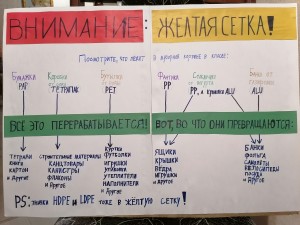 ВНИМАНИЕ: ЖЁЛТАЯ СЕТКА!
Посмотрите, что лежит в
Бумажки
PAP
Коробки
ТЕТРАПАК
Бутылки
PET
Фантики
PP
PP, а крышка ALU
ALU
ВСЁ ЭТО ПЕРЕРАБАТЫВАЕТСЯ! ВОТ, ВО ЧТО ОНИ ПРЕВРАЩАЮТСЯ:
Тетради
книги
картон
и другое
строительные материалы
канцтовары
канистры
флаконы
и другое
куртки
футболки
игрушки
упаковки
утеплители
наполнители
и другое
ящики
крышки
вёдра
игрушки
и другое
банки
фольга
самолёты
велосипеды
посуда
и другое
PS: значки HDPE и LDPE тоже в жёлтую сетку!